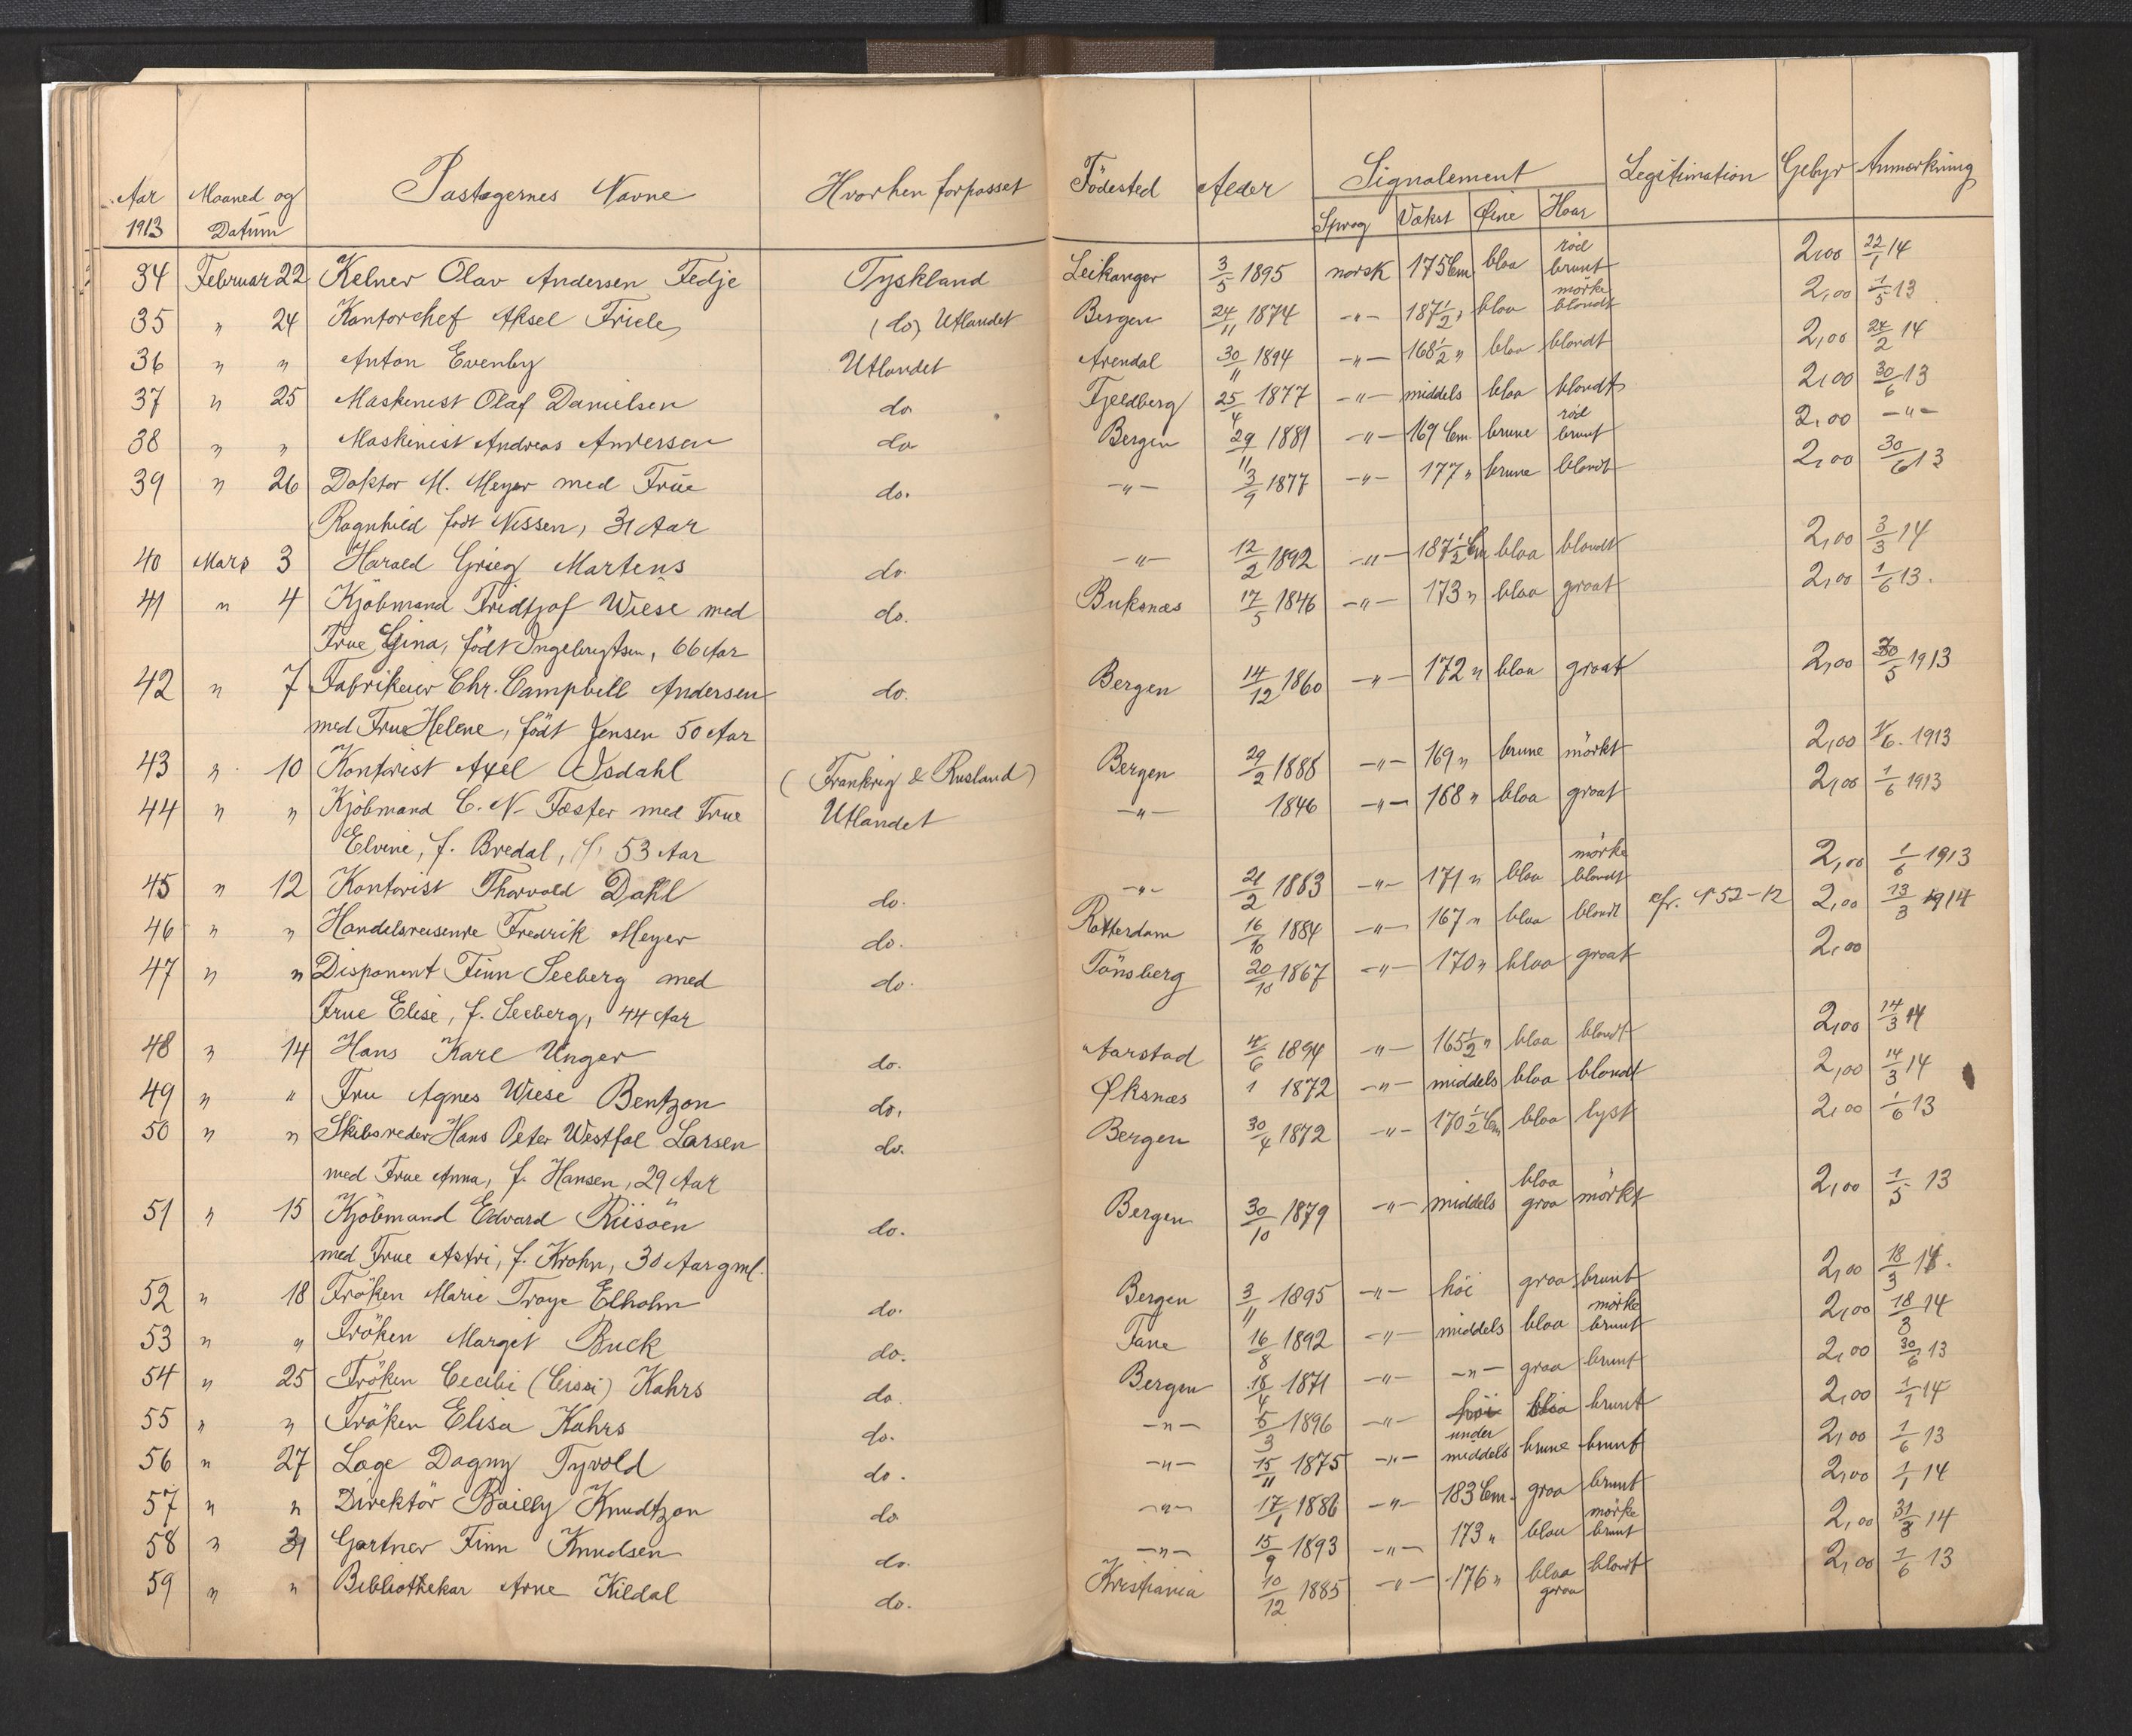 Aar Maaned og Pastagernes Navne Hvorhen forpasset Födested Alder Signalement Legitimation Gebyr Anmærkning
1913 Datum Sprog Vækst Øine Haar
34 Februar 22 Kelner Olav Andersen Fedje Tyskland Leikanger 3/5 1895 norsk 175 Cm bloa röd brunt 2,00 22/1 14
35 " 24 Kontorchef Aksel Friele (do) Utlandet Bergen 24/11 1874 -"- 187½ " bloa mörke blondt 2,00 1/5 13
36 " " Anton Evenby Utlandet Arendal 30/11 1894 -"- 168½ " bloa blondt 2,00 24/2 14
37 " 25 Maskinist Olaf Danielsen do Fjeldberg 25/4 1877 -"- middels bloa blondt 2,00 30/6 13
38 " " Maskinist Andreas Andersen do Bergen 29/11 1881 -"- 169 Cm brune röd brunt 2,00 -"-
39 " 26 Doktor M. Meyer med Frue do. -"- 3/9 1877 -"- 177 " brune blondt 2,00 30/6 13
Ragnhild født Nissen, 31 Aar
40 Mars 3 Harald Grieg Martens do. -"- 12/2 1892 -"- 187½ Cm bloa blondt 2,00 3/3 14
41 " 4 Kjöbmand Fridtjof Wiese med do. Buksnæs 17/5 1846 -"- 173 " bloa graat 2,00 1/6 13.
Frue Gina, födt Ingebrigtsen, 66 Aar
42 " 7 Fabrikeier Chr. Campbell Andersen do. Bergen 14/12 1860 -"- 172 " bloa graat 2,00 30/5 1913
med Frue Helene, födt Jensen 50 Aar
43 " 10 Kontorist Axel Isdahl (Frankrig & Rusland) Bergen 29/2 1888 -"- 169 " brune mörkt 2,00 1/6. 1913
44 " " Kjöbmand C. N. Foster med Frue Utlandet -"- 1846 -"- 168 " bloa graat 2,00 1/6 1913
Elvine, f. Bredal, 53 Aar
45 " 12 Kontorist Thorvald Dahl do. -"- 21/2 1883 -"- 171 " bloa mörke blondt 2,00 1/6 1913
46 " " Handelsreisende Fredrik Meyer do. Rotterdam 16/10 1884 -"- 167 " bloa blondt cfr. 152-12 2,00 13/3 1914
47 " " Disponent Finn Seeberg med do. Tönsberg 20/10 1867 -"- 170 " bloa graat 2,00
Frue Elise, f. Seeberg, 44 Aar
48 " 14 Hans Karl Unger do. Aarstad 4/6 1894 -"- 165½ " bloa blondt 2,00 14/3 14
49 " " Fru Agnes Wiese Bentzon do. Øksnæs 1 1872 -"- middels bloa blondt 2,00 14/3 14
50 " " Skibsreder Hans Peter Westfal Larsen do. Bergen 30/4 1872 -"- 170½ Cm bloa lyst 2,00 1/6 13
med Frue Anna, f. Hansen, 29 Aar
51 " 15 Kjöbmand Edvard Riisöen do. Bergen 30/10 1879 -"- middels bloa graa mörkt 2,00 1/5 13
med Frue Astri, f. Krohn, 30 Aar gml.
52 " 18 Fröken Marie Troye Elholm do. Bergen 3/11 1895 -"- höi graa brunt 2,00 18/3 14.
53 " " Fröken Margit Buck do. Fane 16/8 1892 -"- middels bloa mörke brunt 2,00 18/3 14
54 " 25 Fröken Cecilie (Cissi) Kahrs do. Bergen 18/4 1871 -"- -"- graa brunt 2,00 30/6 13
55 " " Fröken Elisa Kahrs do. -"- 5/3 1896 -"- höi bloa brunt 2,00 1/1 14
56 " 27 Læge Dagny Tyvold do. -"- 15/11 1875 -"- under middels brune brunt 2,00 1/6 13
57 " " Direktör Bailly Knudtzon do -"- 17/1 1886 -"- 183 Cm. graa brunt 2,00 1/1 14
58 " 31 Gartner Finn Knudsen do. -"- 15/9 1893 -"- 173 " bloa mörke brunt 2,00 31/3 14
59 " " Bibliothekar Arne Kildal do. Kristiania 10/12 1885 -"- 176 " bloa graa blondt 2,00 1/6 13